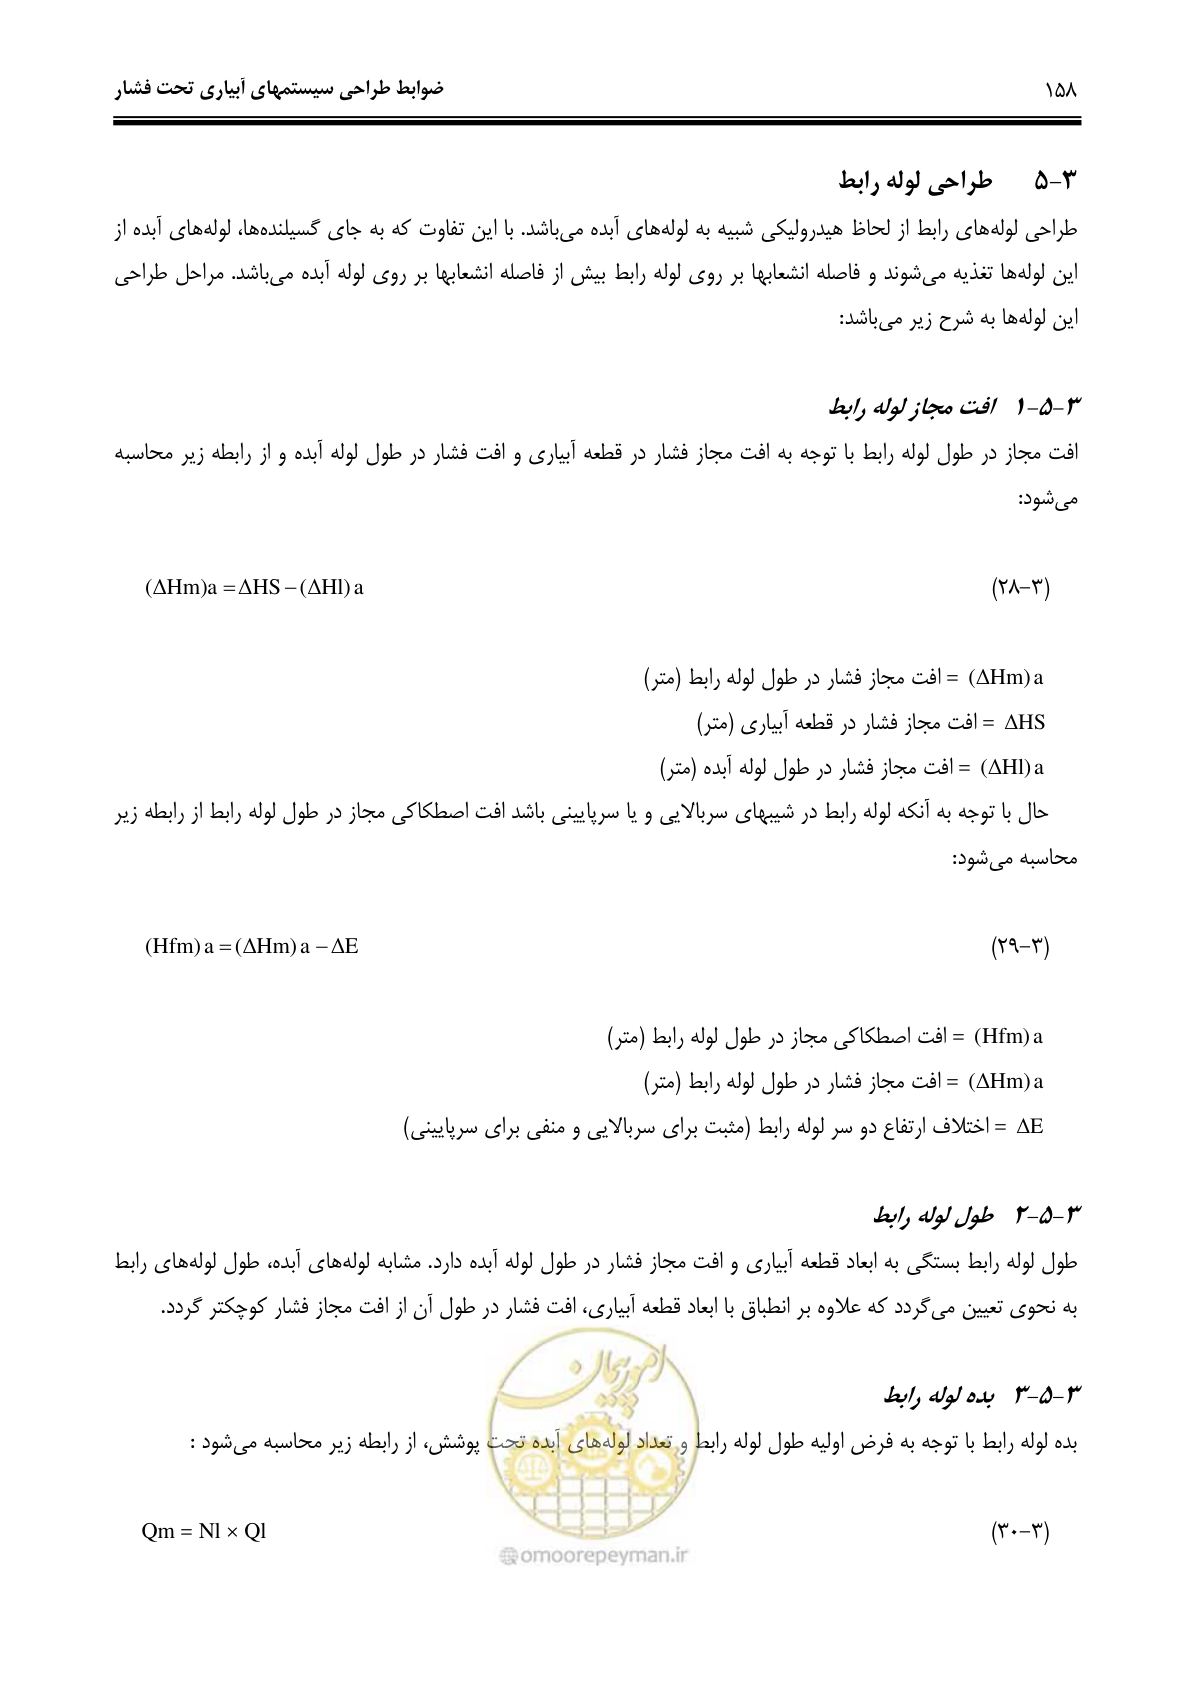 ۱۵۸ ضوابط طراحی سیستمهای آبیاری تحت فشار
۳-۵ طراحی لوله رابط
طراحی لوله‌های رابط از لحاظ هیدرولیکی شبیه به لوله‌های آبده می‌باشد. با این تفاوت که به جای گسیلنده‌ها، لوله‌های آبده از
این لوله‌ها تغذیه می‌شوند و فاصله انشعابها بر روی لوله رابط بیش از فاصله انشعابها بر روی لوله آبده می‌باشد. مراحل طراحی
این لوله‌ها به شرح زیر می‌باشد:
۳-۵-۱ افت مجاز لوله رابط
افت مجاز در طول لوله رابط با توجه به افت مجاز فشار در قطعه آبیاری و افت فشار در طول لوله آبده و از رابطه زیر محاسبه
می‌شود:
(۳-۲۸) (ΔHm)a = ΔHS − (ΔHl)a
(ΔHm)a = افت مجاز فشار در طول لوله رابط (متر)
ΔHS = افت مجاز فشار در قطعه آبیاری (متر)
(ΔHl)a = افت مجاز فشار در طول لوله آبده (متر)
حال با توجه به آنکه لوله رابط در شیبهای سربالایی و یا سرپایینی باشد افت اصطکاکی مجاز در طول لوله رابط از رابطه زیر
محاسبه می‌شود:
(۳-۲۹) (Hfm)a = (ΔHm)a − ΔE
(Hfm)a = افت اصطکاکی مجاز در طول لوله رابط (متر)
(ΔHm)a = افت مجاز فشار در طول لوله رابط (متر)
ΔE = اختلاف ارتفاع دو سر لوله رابط (مثبت برای سربالایی و منفی برای سرپایینی)
۳-۵-۲ طول لوله رابط
طول لوله رابط بستگی به ابعاد قطعه آبیاری و افت مجاز فشار در طول لوله آبده دارد. مشابه لوله‌های آبده، طول لوله‌های رابط
به نحوی تعیین می‌گردد که علاوه بر انطباق با ابعاد قطعه آبیاری، افت فشار در طول آن از افت مجاز فشار کوچکتر گردد.
امور پیمان
۳-۵-۳ بده لوله رابط
بده لوله رابط با توجه به فرض اولیه طول لوله رابط و تعداد لوله‌های آبده تحت پوشش، از رابطه زیر محاسبه می‌شود :
(۳-۳۰) Qm = Nl × Ql
@omoorepeyman.ir